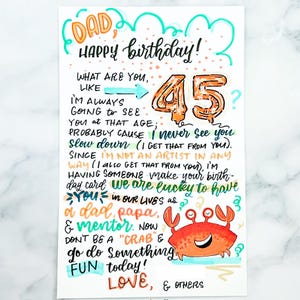 DAD,
HAPPY birthday!
WHAT ARE YOU,
LIKE 45
I'M ALWAYS
GOING to SEE
YOU at THAT AGE,
PROBABLY CAUSE I never see you
slow down (I GET THAT FROM YOU).
SINCE I'M NOT AN ARTIST IN ANY
WAY (I also GET THAT FROM YOU), I'M
HAVING SOMEONE make YOUR birth-
day card we are lucky to have
YOU in OUR LIVES as
a dad, papa,
& mentor. NOW
DON'T BE A "CRAB &
go do something
FUN today!
LOVE, & OTHERS